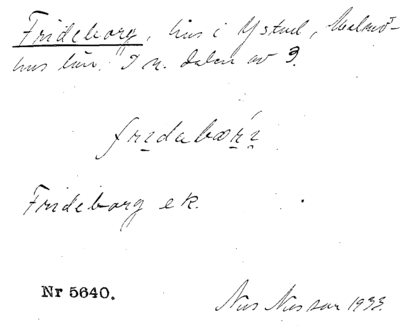 Frideborg, hus i Ystad, Malmö-
hus län. I n. delen av 9.
fridabærí
Frideborg ek.
Nr 5640.
Nils Nilsson 1933.